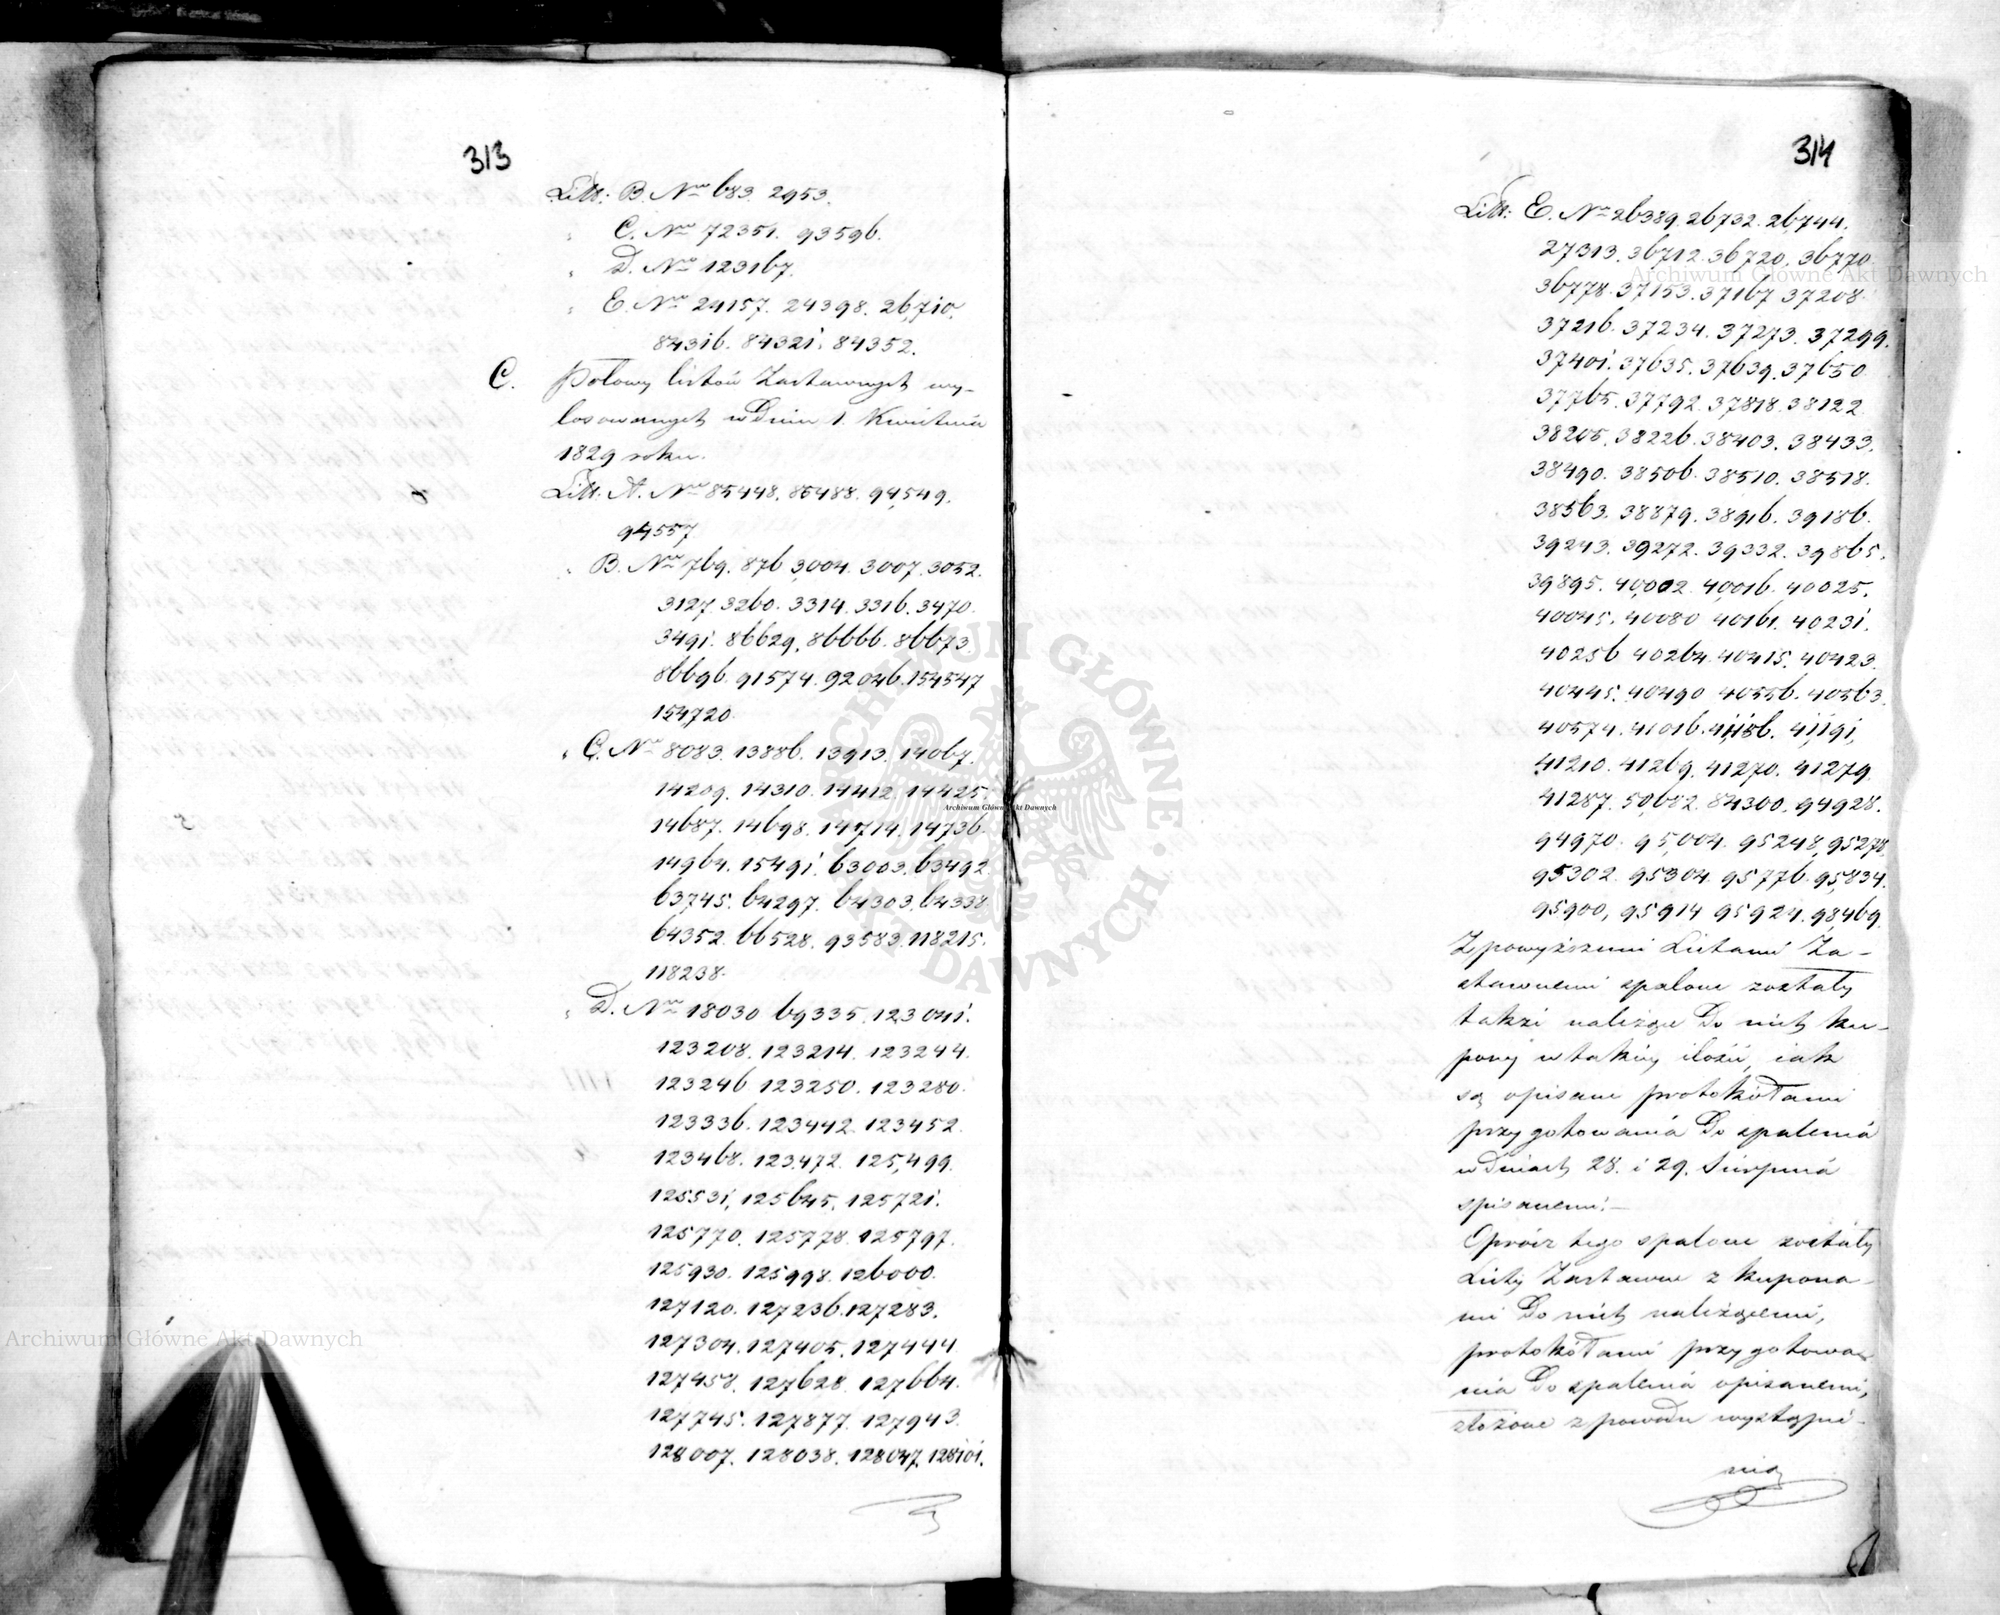 313
Litt: B. Nro 683. 2953.
" C. Nro 72351. 93596.
" D. Nro 123167.
" E. Nro 24157. 24398. 26,710.
84316. 84321. 84352.
C. Połowy listów Zastawnych wy-
losowanych w Dniu 1. Kwietnia
1829 roku.
Litt. A. Nro 85448. 85488. 94,549.
94557
" B. Nro 769. 876 3,004. 3007. 3052.
3127. 3260. 3314. 3316. 3470.
3491. 86629. 86666. 86673.
86696. 91574. 92046. 154547
154,720.
" C. Nro 8083. 13886. 13913. 14067.
14209. 14310. 14412. 14425.
14687. 14698. 14714. 14736.
14964. 15491. 63003. 63492
63745. 64297. 64303. 64338
64352. 66528. 93583. 118215.
118238.
" D. Nro 18030 69335. 123041.
123208. 123214. 123244.
123246 123250. 123280.
123336. 123442. 123452.
123468. 123472. 125,499.
125531, 125645, 125721.
125770. 125778. 125797.
125930. 125998. 126000.
127120. 127236. 127283.
127304. 127405. 127444
127458. 127628. 127664.
127745. 127877. 127943.
128007. 128038. 128047. 128101.
314
Litt: E. Nro 26389. 26732. 26744.
27313. 36712. 36720. 36770
36778. 37153. 37167 37208.
37216. 37234. 37273. 37299.
37401. 37635. 37639. 37650
37765. 37792. 37818. 38122
38205. 38226. 38403. 38433.
38490. 38506. 38510. 38518.
38563. 38879. 38916. 39186.
39243. 39272. 39332. 39865.
39895. 40,002. 40,016. 40025.
40045. 40080 40161. 40231.
40256 40264. 40415. 40423.
40445. 40490 40556. 40563
40574. 41016. 41,186. 41,191,
41210. 41269. 41270. 41279.
41287. 50,682. 84300. 94928.
94970. 95,004. 95248. 95278
95302. 95304. 95776. 95,834.
95900, 95914 95924. 98,469.
Z powyższemi Listami Za-
stawnemi spalone zostały
także należące Do nich ku-
pony w takiey ilości, iak
są opisane protokółami
przygotowania Do spalenia
w Dniach 28. i 29. Sierpnia
spisanemi.-
Oprócz tego spalone zostały
Listy Zastawne z kupona-
mi Do nich należącemi,
protokółami przygotowa-
nia Do spalenia opisanemi,
złożone z powodu wystąpie-
nia
Archiwum Główne Akt Dawnych
Archiwum Główne Akt Dawnych
Archiwum Główne Akt Dawnych
ARCHIWUM GŁÓWNE · AKT DAWNYCH ·